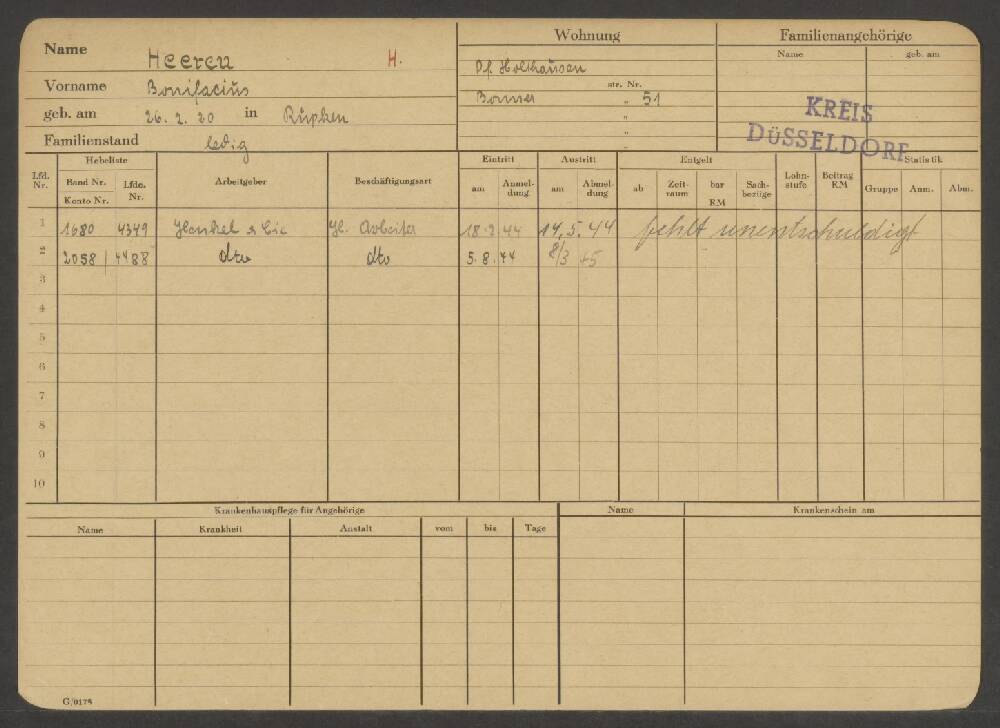 Name Heeren H.
Vorname Bonifacius
geb. am 26. 2. 20 in Rüpken
Familienstand ledig
Wohnung
Df. Holthausen
str. Nr.
Bonner " 51
"
"
Familienangehörige
Name geb. am
KREIS
DÜSSELDORF
Lfd. Nr. Hebeliste Arbeitgeber Beschäftigungsart Eintritt Austritt Entgelt Lohn-stufe Beitrag RM Statistik
Band Nr. Konto Nr. Lfde. Nr. am Anmel-dung am Abmel-dung ab Zeit-raum bar RM Sach-bezüge Gruppe Anm. Abm.
1 1680 4349 Henkel & Cie Hl. Arbeiter 18.2.44 14.5.44 fehlt unentschuldigt
2 2058 / 4488 dto dto 5.8.44 8/3 45
3
4
5
6
7
8
9
10
Krankenhauspflege für Angehörige
Name Krankheit Anstalt vom bis Tage
Name Krankenschein am
G/0178